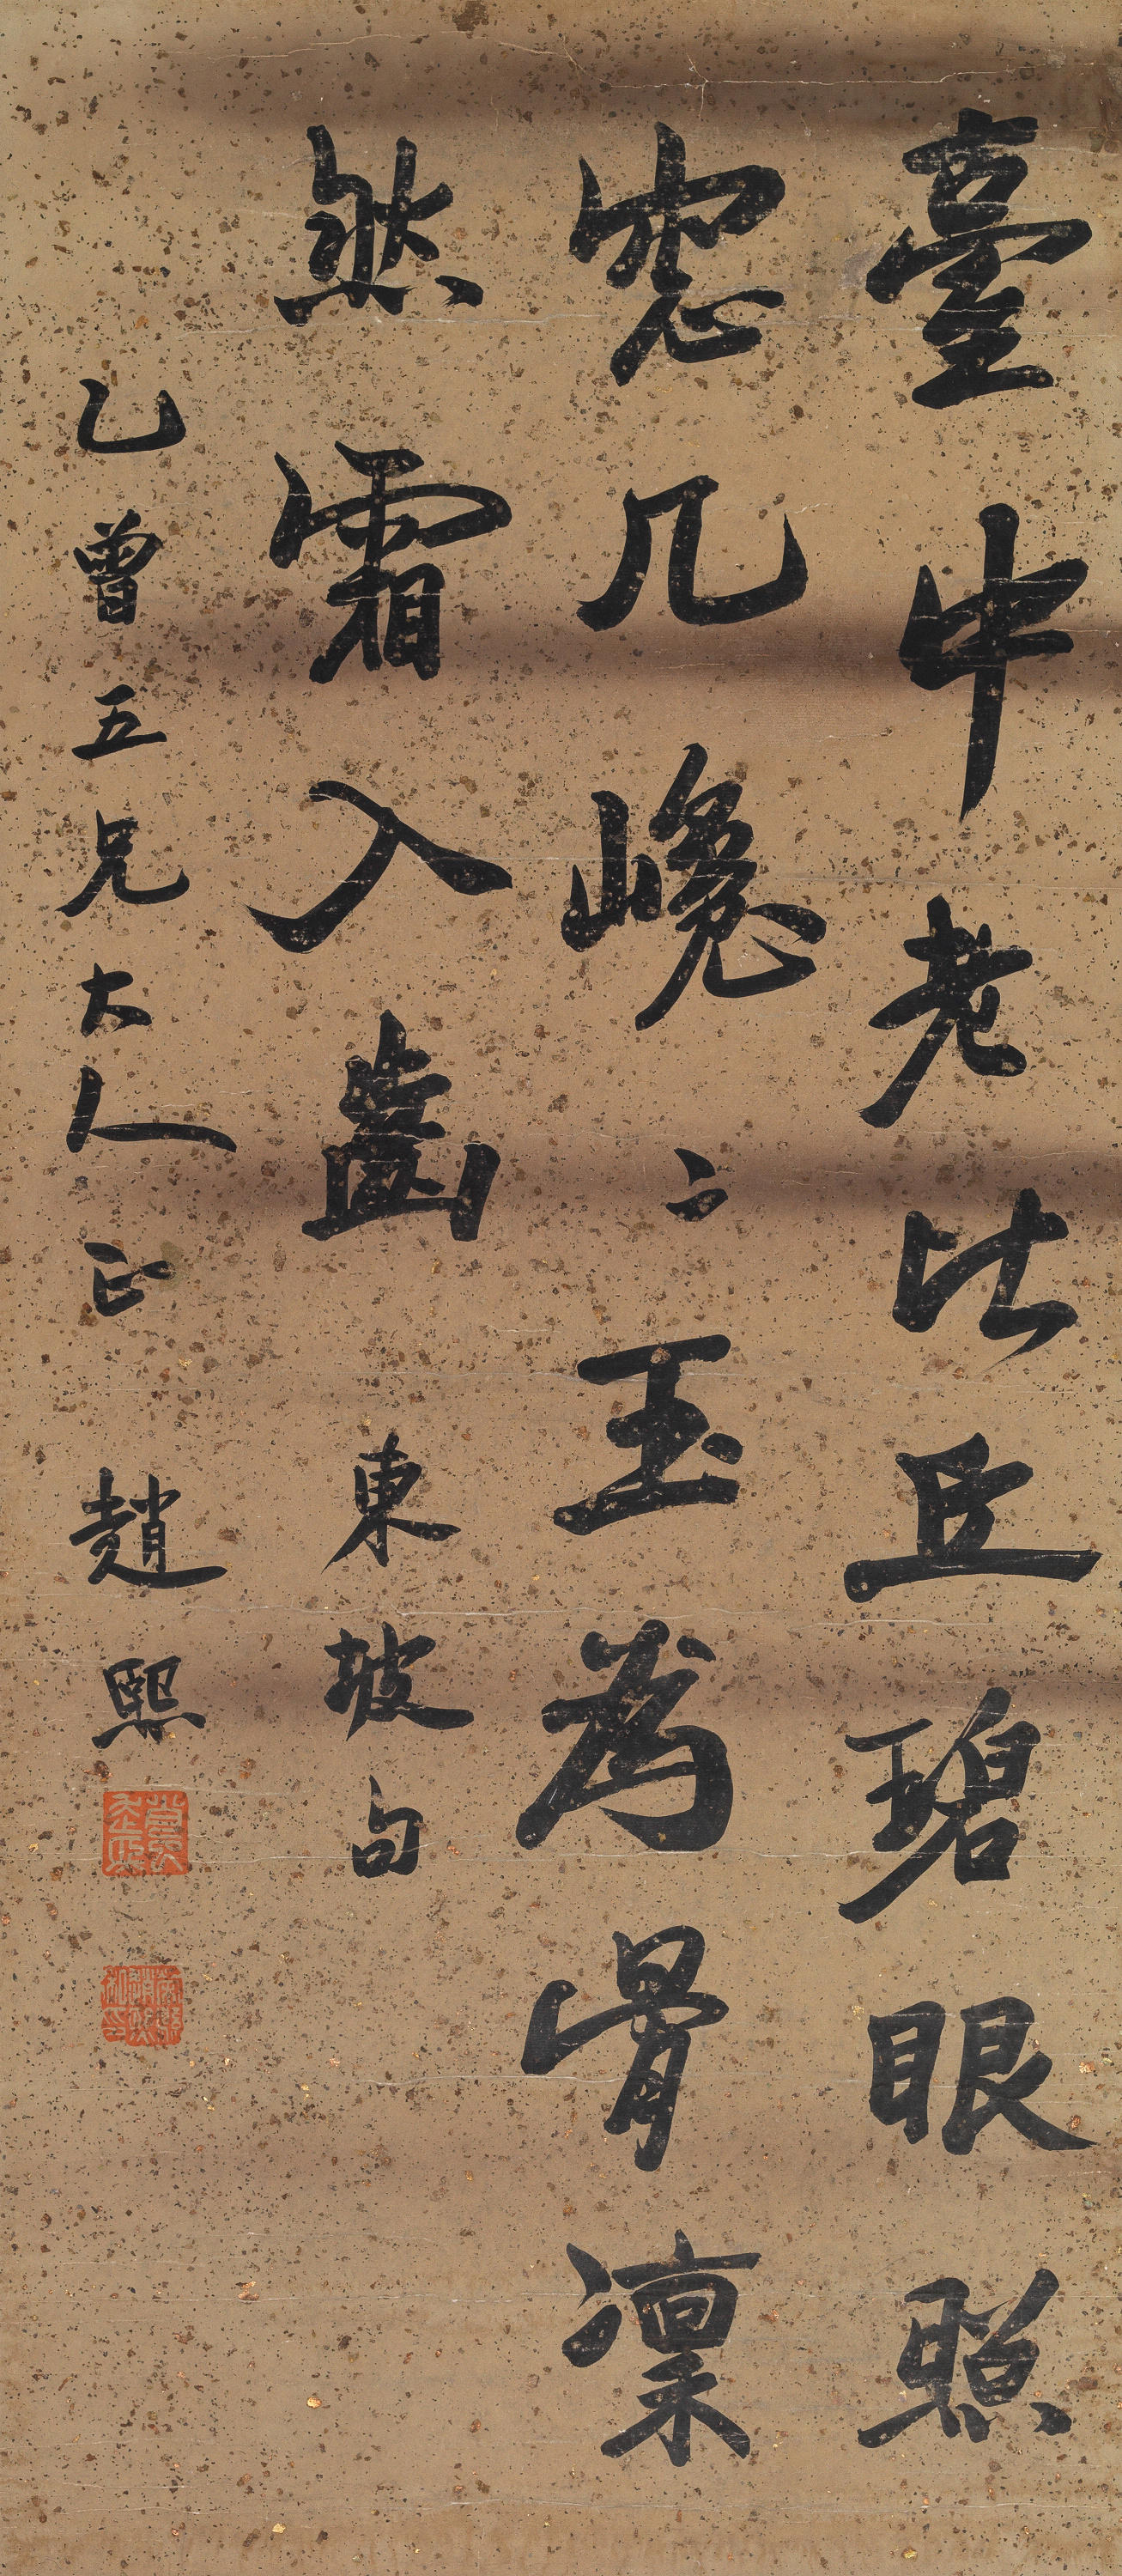 臺中老比丘碧眼照
窓几巉〻玉為骨凜
然霜入齒 東坡句
乙曾五兄大人正 趙熙